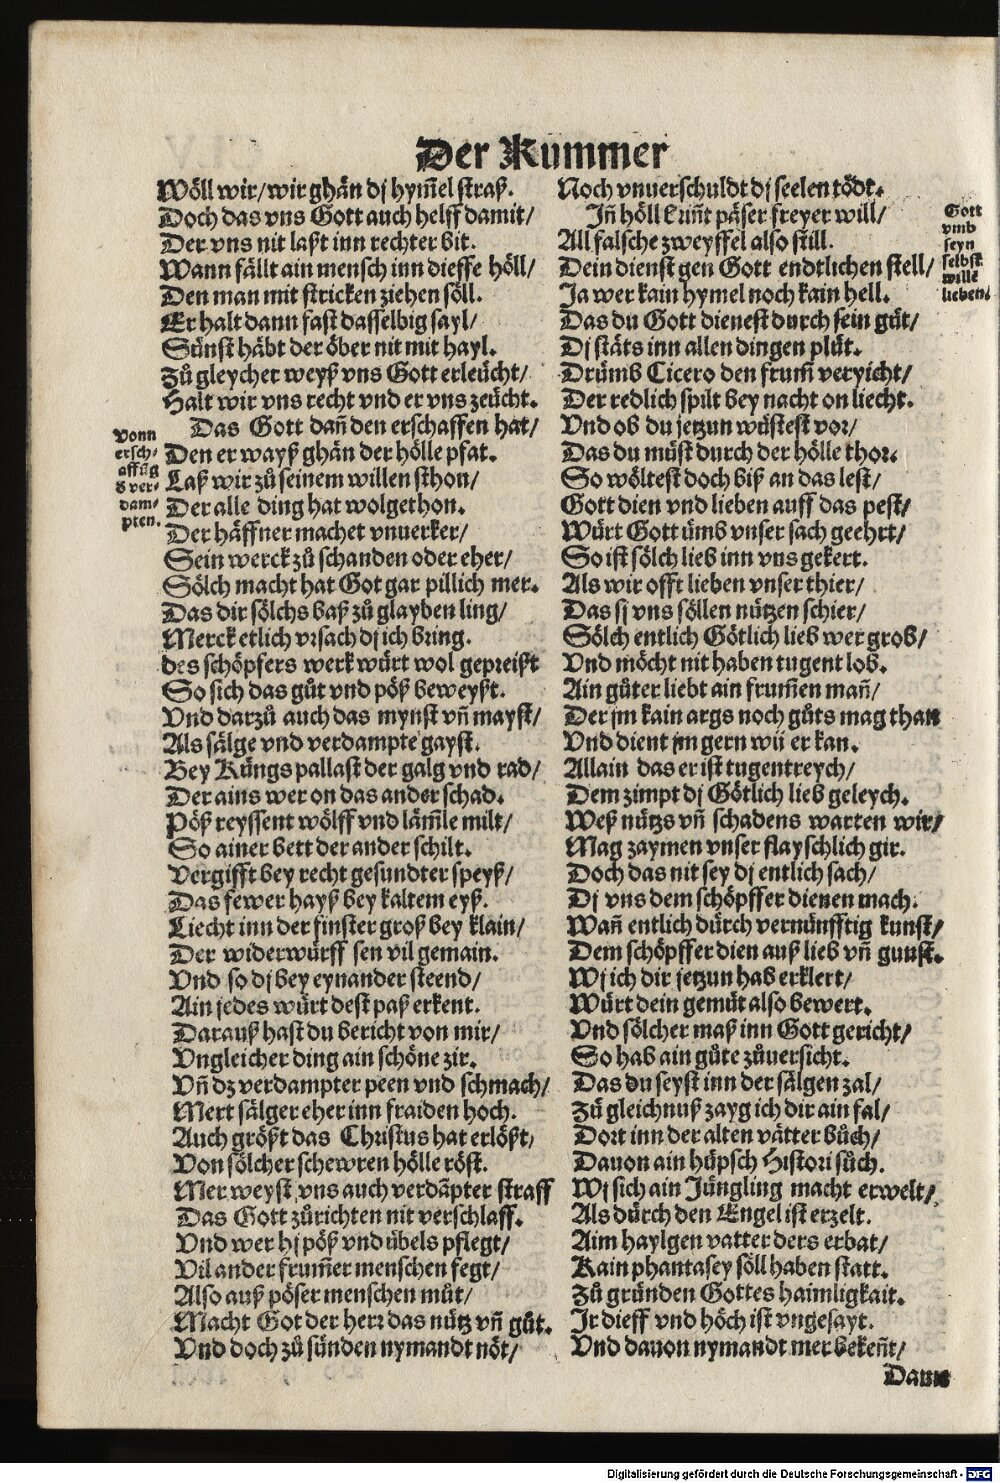 Der Kummer
Wöll wir/ wir ghän dj hym̃el straß.
Doch das vns Gott auch helff damit/
Der vns nit laßt inn rechter bit.
Wann fällt ain mensch inn dieffe höll/
Den man mit stricken ziehen söll.
Er halt dann fast dasselbig sayl/
Sünst häbt der öber nit mit hayl.
Zů gleycher weyß vns Gott erleücht/
Halt wir vns recht vnd er vns zeücht.
Das Gott dañ den erschaffen hat/
Vonn
ersch-
affũg
d ver-
dam-
pten.
Den er wayß ghän der hölle pfat.
Laß wir zů seinem willen sthon/
Der alle ding hat wolgethon.
Der häffner machet vnuerker/
Sein werck zů schanden oder eher/
Sölch macht hat Got gar pillich mer.
Das dir sölchs baß zů glayben ling/
Merck etlich vrsach dj ich bring.
des schöpfers werk würt wol gepreißt
So sich das gůt vnd pöß beweyßt.
Vnd darzů auch das mynst vñ mayst/
Als sälge vnd verdampte gayst.
Bey Küngs pallast der galg vnd rad/
Der ains wer on das ander schad.
Pöß reyssent wölff vnd läm̃le milt/
So ainer bett der ander schilt.
Vergifft bey recht gesundter speyß/
Das fewer hayß bey kaltem eyß.
Liecht inn der finster groß bey klain/
Der widerwürff sen vil gemain.
Vnd so dj bey eynander steend/
Ain jedes würt dest paß erkent.
Darauß hast du bericht von mir/
Vngleicher ding ain schöne zir.
Vñ dz verdampter peen vnd schmach/
Mert sälger eher inn fraiden hoch.
Auch größt das Christus hat erlößt/
Von sölcher schewren hölle röst.
Mer weyst vns auch verdãpter straff
Das Gott zůrichten nit verschlaff.
Vnd wer hj pöß vnd übels pflegt/
Vil ander frum̃er menschen fegt/
Also auß pöser menschen můt/
Macht Got der herr das nütz vñ gůt.
Vnd doch zů sünden nymandt nöt/
Noch vnuerschuldt dj seelen tödt.
Jñ höll kum̃t päser freyer will/
All falsche zweyffel also still.
Dein dienst gen Gott endtlichen stell/
Ja wer kain hymel noch kain hell.
Gott
vmb
seyn
selbst
willẽ
lieben.
Das du Gott dienest durch sein güt/
Dj stäts inn allen dingen plüt.
Drümb Cicero den frum̃ veryicht/
Der redlich spilt bey nacht on liecht.
Vnd ob du jetzun wüstest vor/
Das du müst durch der hölle thor.
So wöltest doch biß an das lest/
Gott dien vnd lieben auff das pest/
Würt Gott ümb vnser sach geehrt/
So ist sölch lieb inn vns gekert.
Als wir offt lieben vnser thier/
Das sj vns söllen nützen schier/
Sölch entlich Götlich lieb wer grob/
Vnd möcht nit haben tugent lob.
Ain gůter liebt ain frum̃en mañ/
Der jm kain args noch gůts mag than
Vnd dient jm gern wii er kan.
Allain das er ist tugentreych/
Dem zimpt dj Götlich lieb geleych.
Weß nützs vñ schadens warten wir/
Mag zaymen vnser flayschlich gir.
Doch das nit sey dj entlich sach/
Dj vns dem schöpffer dienen mach.
Wañ entlich dürch vernünfftig kunst/
Dem schöpffer dien auß lieb vñ gunst.
Wj ich dir jetzun hab erklert/
Würt dein gemüt also bewert.
Vnd sölcher maß inn Gott gericht/
So hab ain gůte zůuersicht.
Das du seyst inn der sälgen zal/
Zů gleichnuß zayg ich dir ain fal/
Dort inn der alten vätter bůch/
Dauon ain hüpsch Histori sůch.
Wj sich ain Jüngling macht erwelt/
Als dürch den Engel ist erzelt.
Aim haylgen vatter ders erbat/
Kain phantasey söll haben statt.
Zů gründen Gottes haimligkait.
Jr dieff vnd höch ist vngesayt.
Vnd dauon nymandt mer bekeñt/
Dann
Digitalisierung gefördert durch die Deutsche Forschungsgemeinschaft - DFG